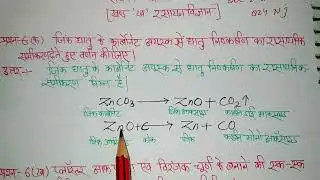 [खण्ड 'ब' रसायन विज्ञान]
प्रश्न-6(क) जिंक धातु के कार्बोनेट अयस्क से धातु निष्कर्षण का रासायनिक
समीकरण देते हुए वर्णन कीजिए।
उत्तर:- जिंक धातु के कार्बोनेट अयस्क से धातु निष्कर्षण का रासायनिक
समीकरण निम्न है।
ZnCO₃ → ZnO + CO₂↑
जिंक कार्बोनेट जिंक ऑक्साइड कार्बन डाई ऑक्साइड
ZnO+C → Zn + CO
जिंक कार्बन जिंक कार्बन मोनो ऑक्साइड
प्रश्न-6(ख) प्लास्टर एवं विरंजक चूर्ण के बनाने की एक-एक